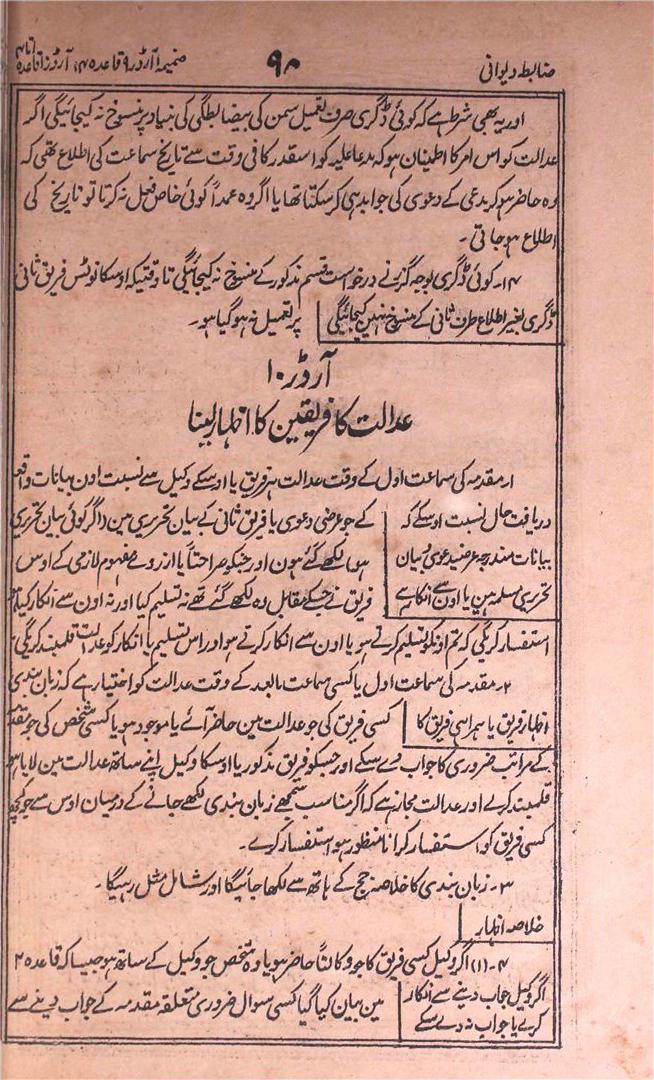 ضابطہ دیوانی
۹۸
ضمیمہ ۱ آرڈر ۹ قاعدہ ۱۴، آرڈر ۱۰ قاعدہ ۱ تا ۴
اور یہ بھی شرط ہے کہ کوئی ڈگری صرف تعمیل سمن کی بیضابطگی کی بنیاد پر منسوخ نہ کیجائیگی اگر
عدالت کو اس امر کا اطمینان ہو کہ مدعا علیہ کو اسقدر کافی وقت سے تاریخ سماعت کی اطلاع تھی کہ
وہ حاضر ہو کر مدعی کے دعوی کی جوابدہی کر سکتا تھا یا اگر وہ عمداً کوئی خاص فعل نہ کرتا تو تاریخ کی
اطلاع ہو جاتی۔
۱۴۔ کوئی ڈگری بوجہ گزرنے درخواست قسم مذکور کے منسوخ نہ کیجائیگی تا وقتیکہ اوسکا نوٹس فریق ثانی
ڈگری بغیر اطلاع طرف ثانی کے منسوخ نہیں کیجائیگی
پر تعمیل نہ ہو گیا ہو۔
آرڈر ۱۰
عدالت کا فریقین کا اظہار لینا
۱۔ مقدمہ کی سماعت اول کے وقت عدالت ہر فریق یا اوسکے وکیل سے نسبت اون بیانات واقعہ
دریافت حال نسبت اوسکے کہ
بیانات مندرجہ عرضیدعوی و بیان
تحریری مسلمہ ہین یا اون سے انکار ہے
کے جو عرضی دعوی یا فریق ثانی کے بیان تحریری مین (اگر کوئی بیان تحریری
ہو) لکھے گئے ہون اور جنکو صراحتاً یا از روے مفہوم لازمی کے اوس
فریق نے جسکے مقابل وہ لکھے گئے تھے نہ تسلیم کیا اور نہ اون سے انکار کیا ہو
استفسار کریگی کہ تم اونکو تسلیم کرتے ہو یا اون سے انکار کرتے ہو اور اس تسلیم یا انکار کو عدالت قلمبند کریگی۔
۲۔ مقدمہ کی سماعت اول یا کسی سماعت مابعد کے وقت عدالت کو اختیار ہے کہ زبان بندی
اظہار فریق یا ہمراہی فریق کا
کسی فریق کی جو عدالت مین حاضر آئے یا موجود ہو یا کسی شخص کی جو مقدمہ
کے مراتب ضروری کا جواب دے سکے اور جسکو فریق مذکور یا اوسکا وکیل اپنے ساتھ عدالت مین لایا ہو
قلمبند کرے اور عدالت مجاز ہے کہ اگر مناسب سمجھے زبان بندی لکھے جانے کے درمیان اوس سے جو کچھ
کسی فریق کو استفسار کرانا منظور ہو استفسار کرے۔
۳۔ زبان بندی کا خلاصہ جج کے ہاتھ سے لکھا جائیگا اور شامل مثل رہیگا۔
خلاصہ اظہار
۴۔ (۱) اگر وکیل کسی فریق کا جو وکالتاً حاضر ہو یا وہ شخص جو وکیل کے ساتھ ہو جیسا کہ قاعدہ ۲
اگر وکیل جواب دینے سے انکار
کرے یا جواب نہ دے سکے
مین بیان کیا گیا کسی سوال ضروری متعلقہ مقدمہ کے جواب دینے سے